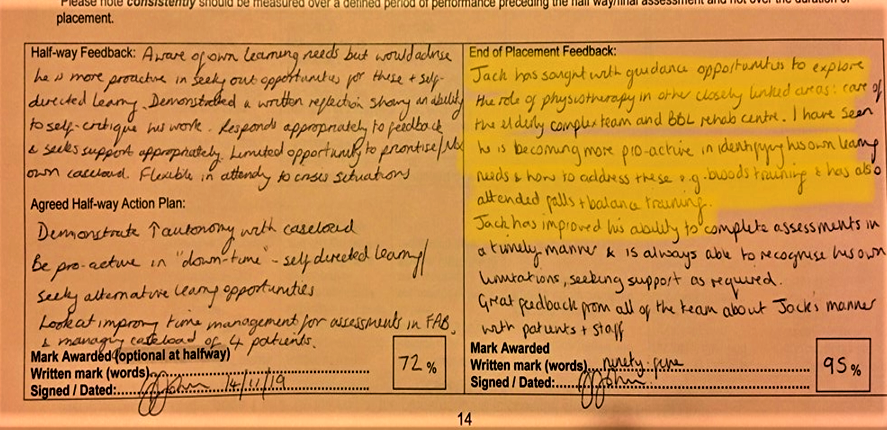 Please note consistently should be measured over a defined period of performance preceding the half way/final assessment and not over the duration of
placement.
Half-way Feedback: Aware of own learning needs but would advise
he is more proactive in seeking out opportunities for these + self-
directed learng. Demonstrated a written reflection showing an ability
to self-critique his work. Responds appropriately to feedback
& seeks support appropriately. Limited opportunity to prioritise
own caseload. Flexible in attendg to crises situations
Agreed Half-way Action Plan:
Demonstrate ↑ autonomy with caseload
Be pro-active in "down-time" - self directed learng/
seeking alternative learng opportunities
Look at improvng time management for assessments in FAB.
& managing caseload of 4 patients.
Mark Awarded (optional at halfway)
Written mark (words)
72 %
Signed / Dated: 14/11/19
End of Placement Feedback:
Jack has sought with guidance opportunities to explore
the role of physiotherapy in other closely linked areas: care of
the elderly complex team and rehab centre. I have seen
he is becoming more pro-active in identifying his own learng
needs & how to address these e.g. bloods training & has also
attended falls + balance training.
Jack has improved his ability to complete assessments in
a timely manner & is always able to recognise his own
limitations, seeking support as required.
Great feedback from all of the team about Jack's manner
with patients + staff
Mark Awarded
Written mark (words) ninety-five
95 %
Signed / Dated:
14